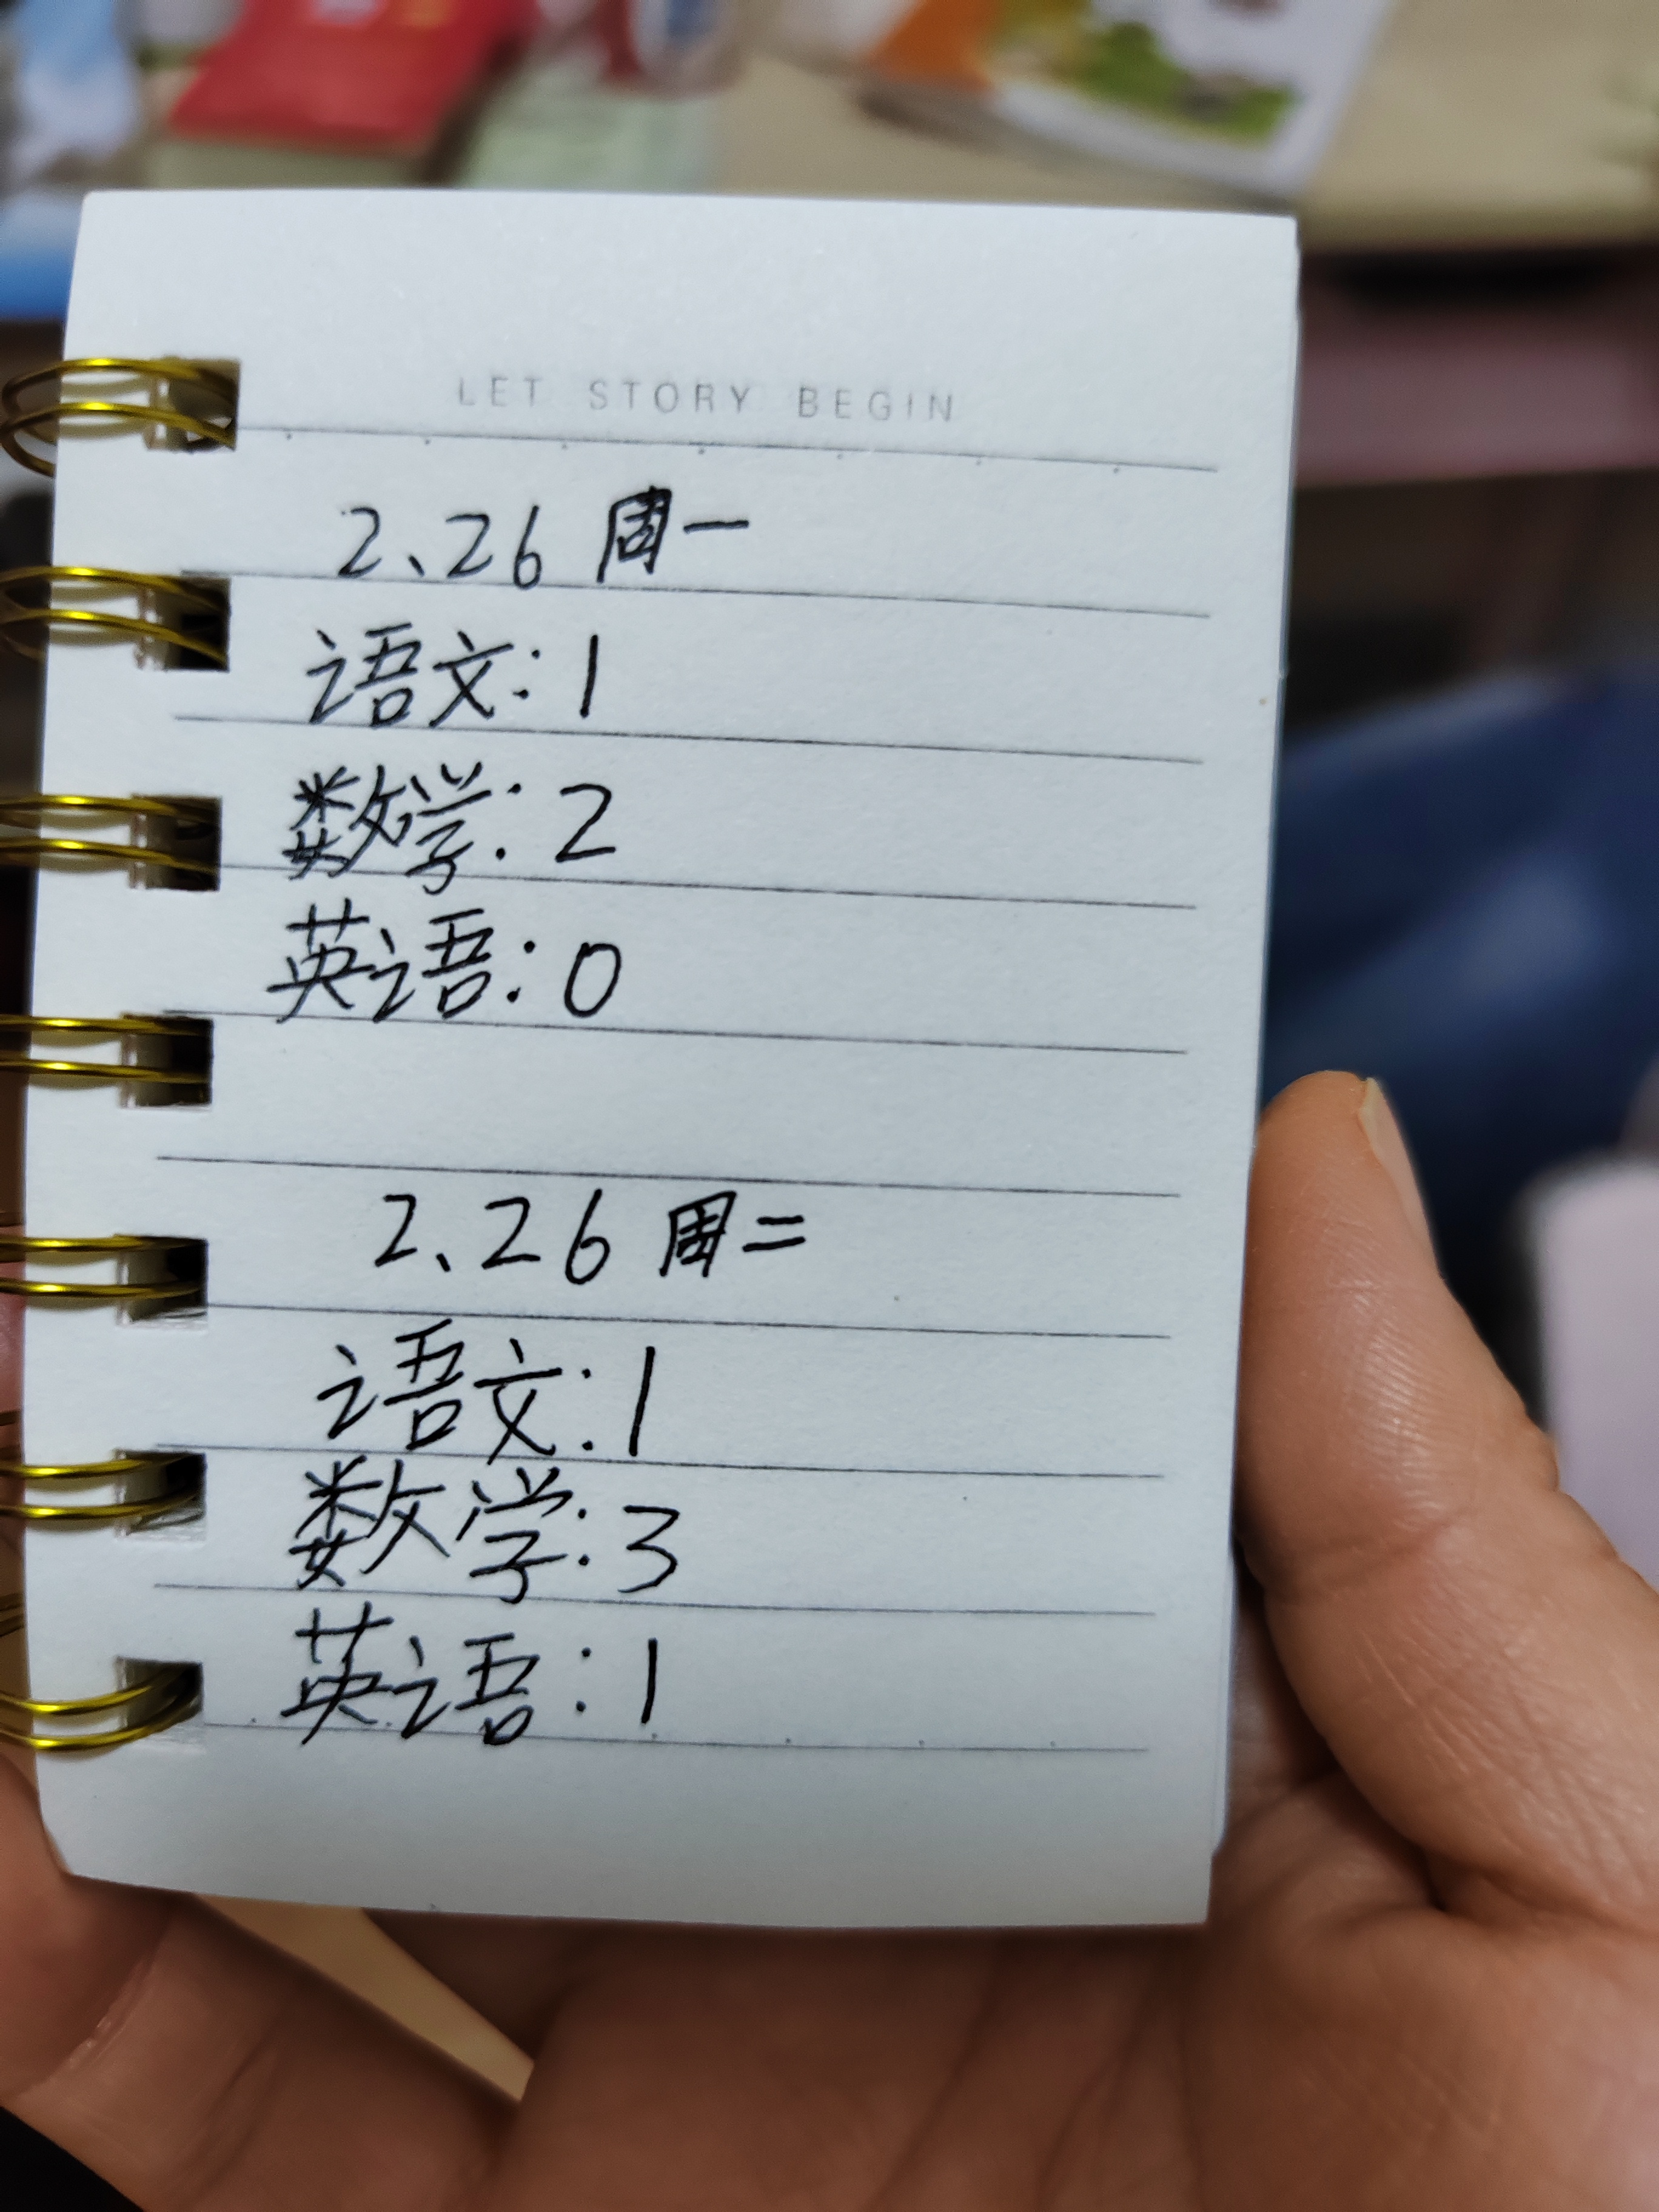 LET STORY BEGIN
2、26 周一
语文:1
数学:2
英语:0
2、26 周二
语文:1
数学:3
英语:1